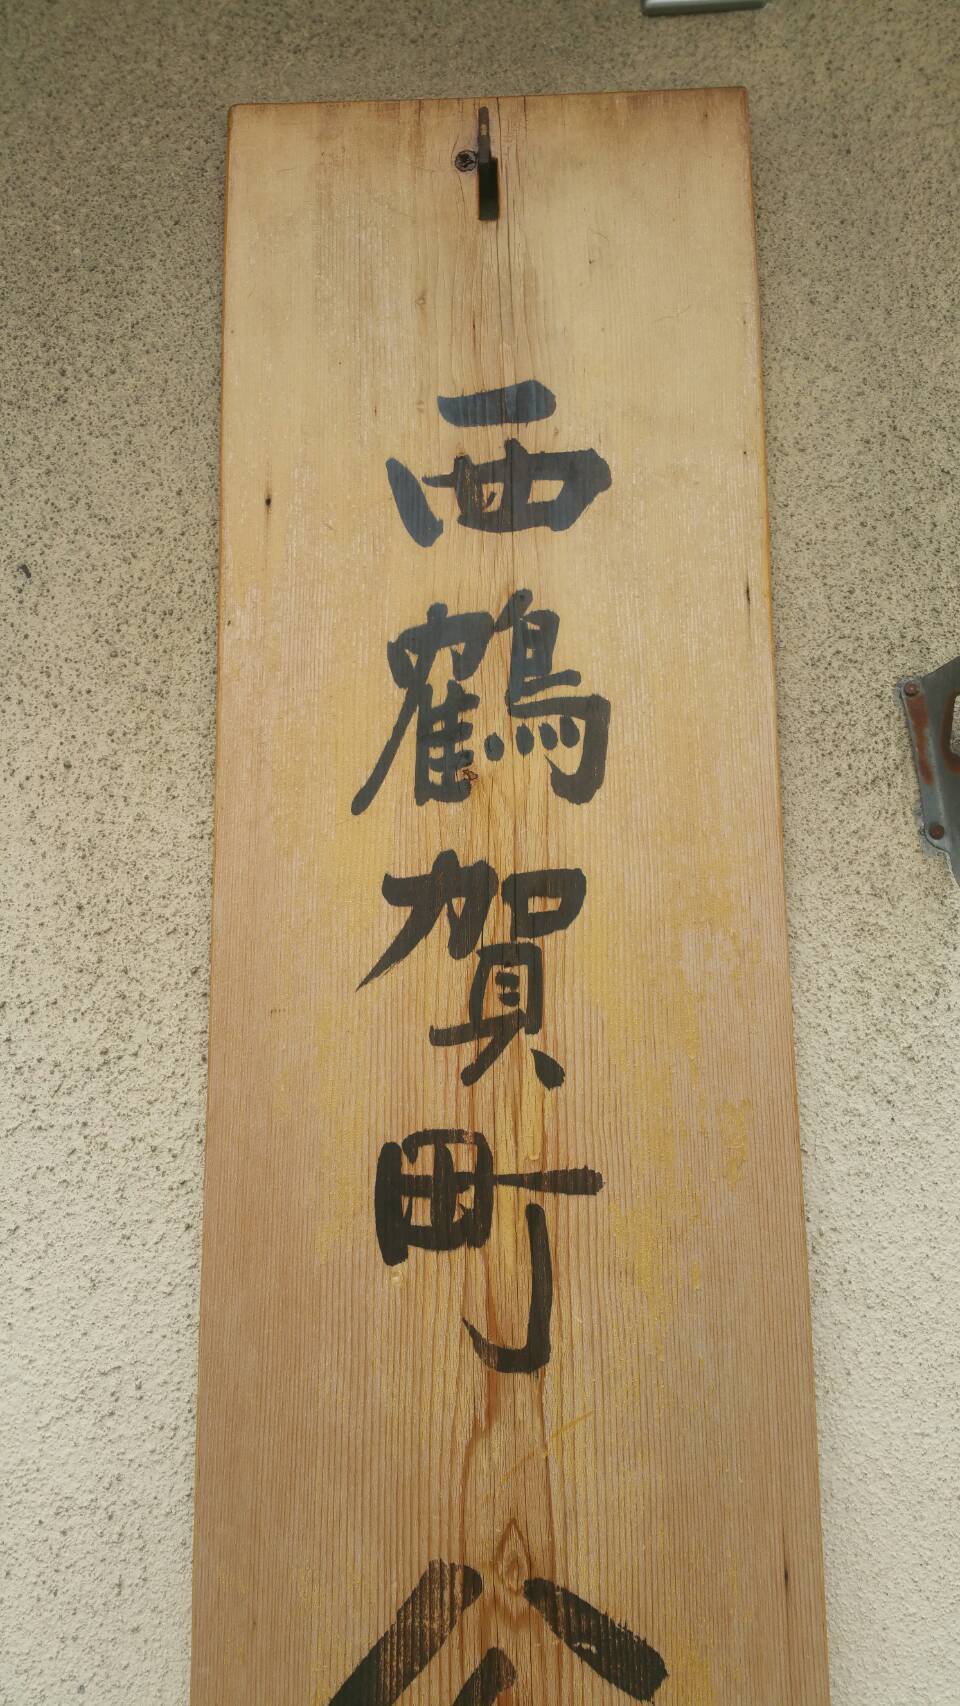 西鶴賀町公